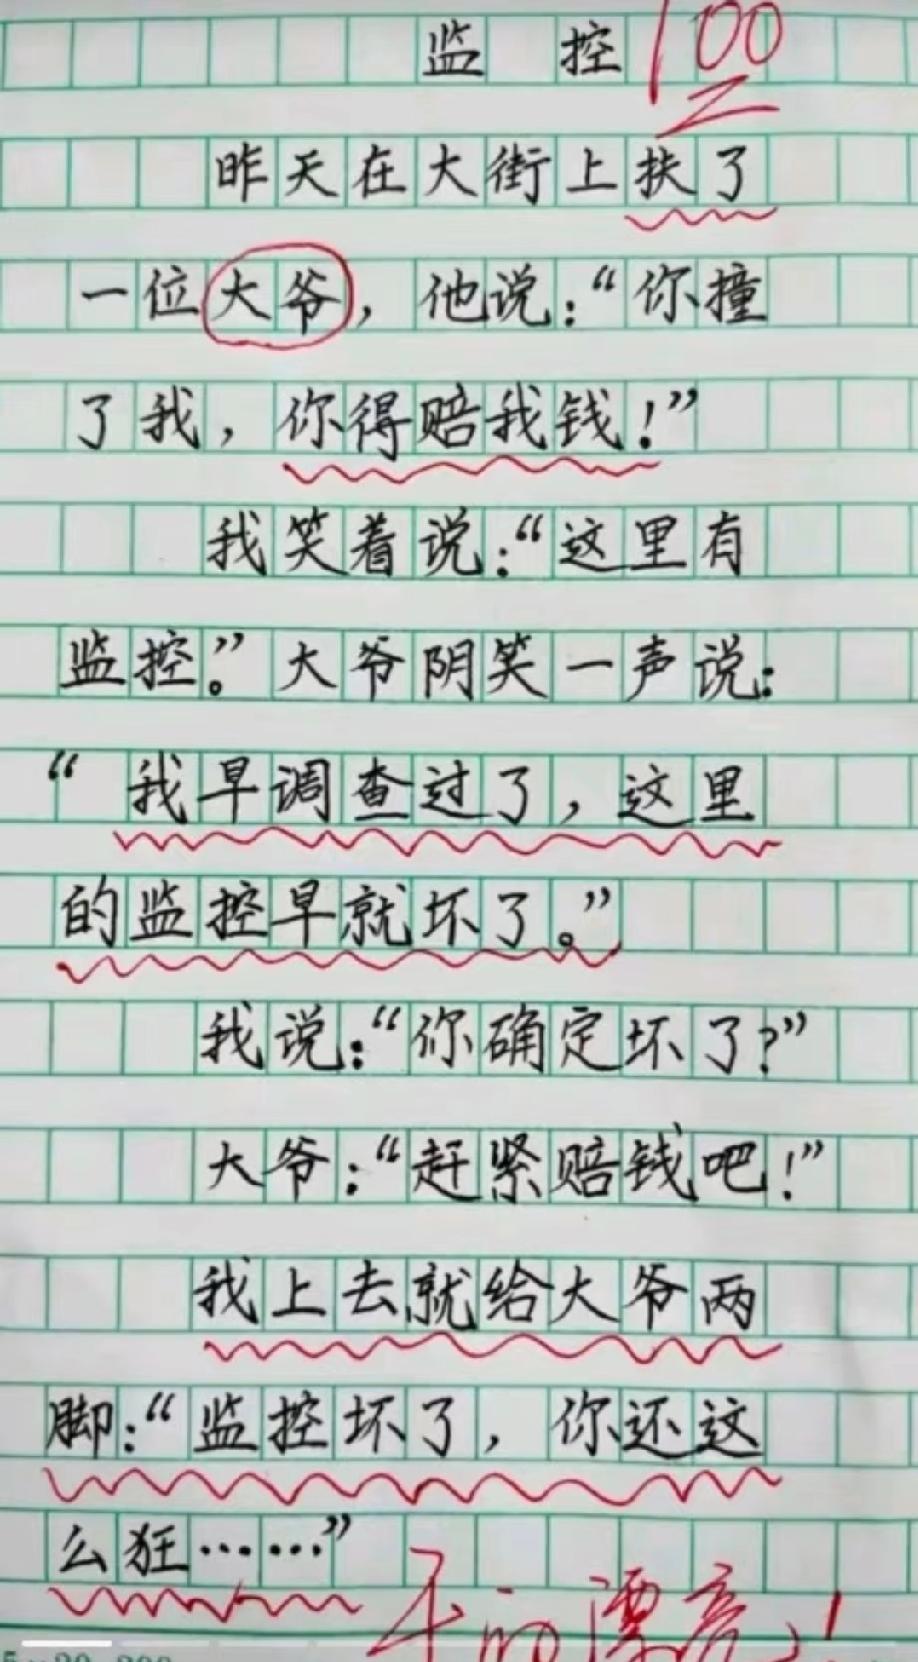 监控 100
昨天在大街上扶了
一位大爷，他说：“你撞
了我，你得赔我钱！”
我笑着说：“这里有
监控。”大爷阴笑一声说：
“我早调查过了，这里
的监控早就坏了。”
我说：“你确定坏了？”
大爷：“赶紧赔钱吧！”
我上去就给大爷两
脚：“监控坏了，你还这
么狂……”
干的漂亮！